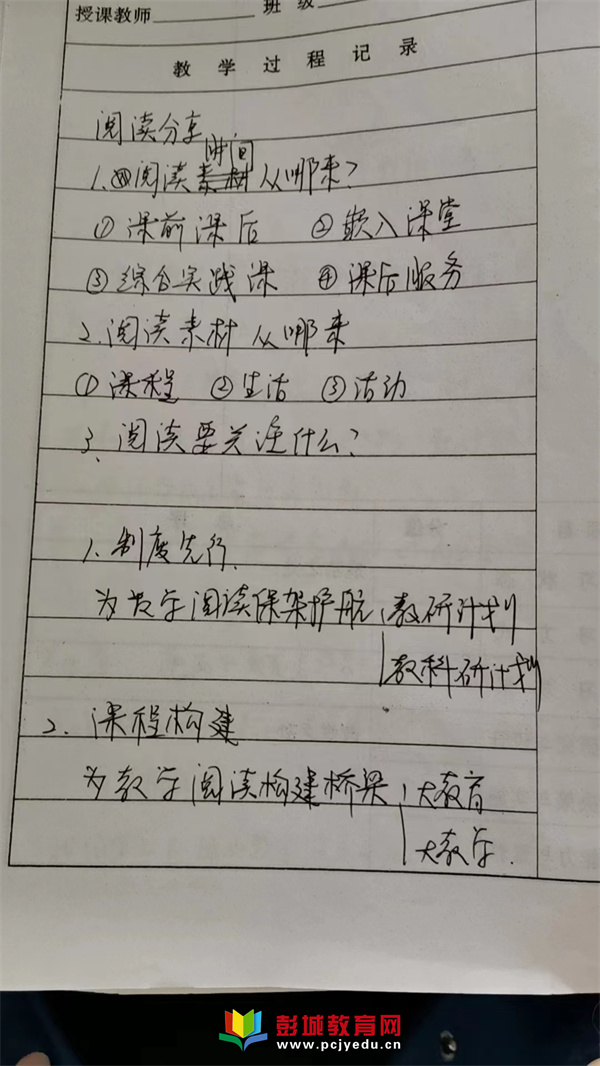 授课教师 班级
教学过程记录
阅读分享
时间
1.阅读素材从哪来?
①课前课后 ②嵌入课堂
③综合实践课 ④课后服务
2.阅读素材从哪来
①课程 ②生活 ③活动
3.阅读要关注什么?
1.制度先行.
为大学阅读保架护航 教研计划
教科研计划
2.课程构建
为教学阅读构建桥梁 大教育
大教学.
彭城教育网
www.pcjyedu.cn